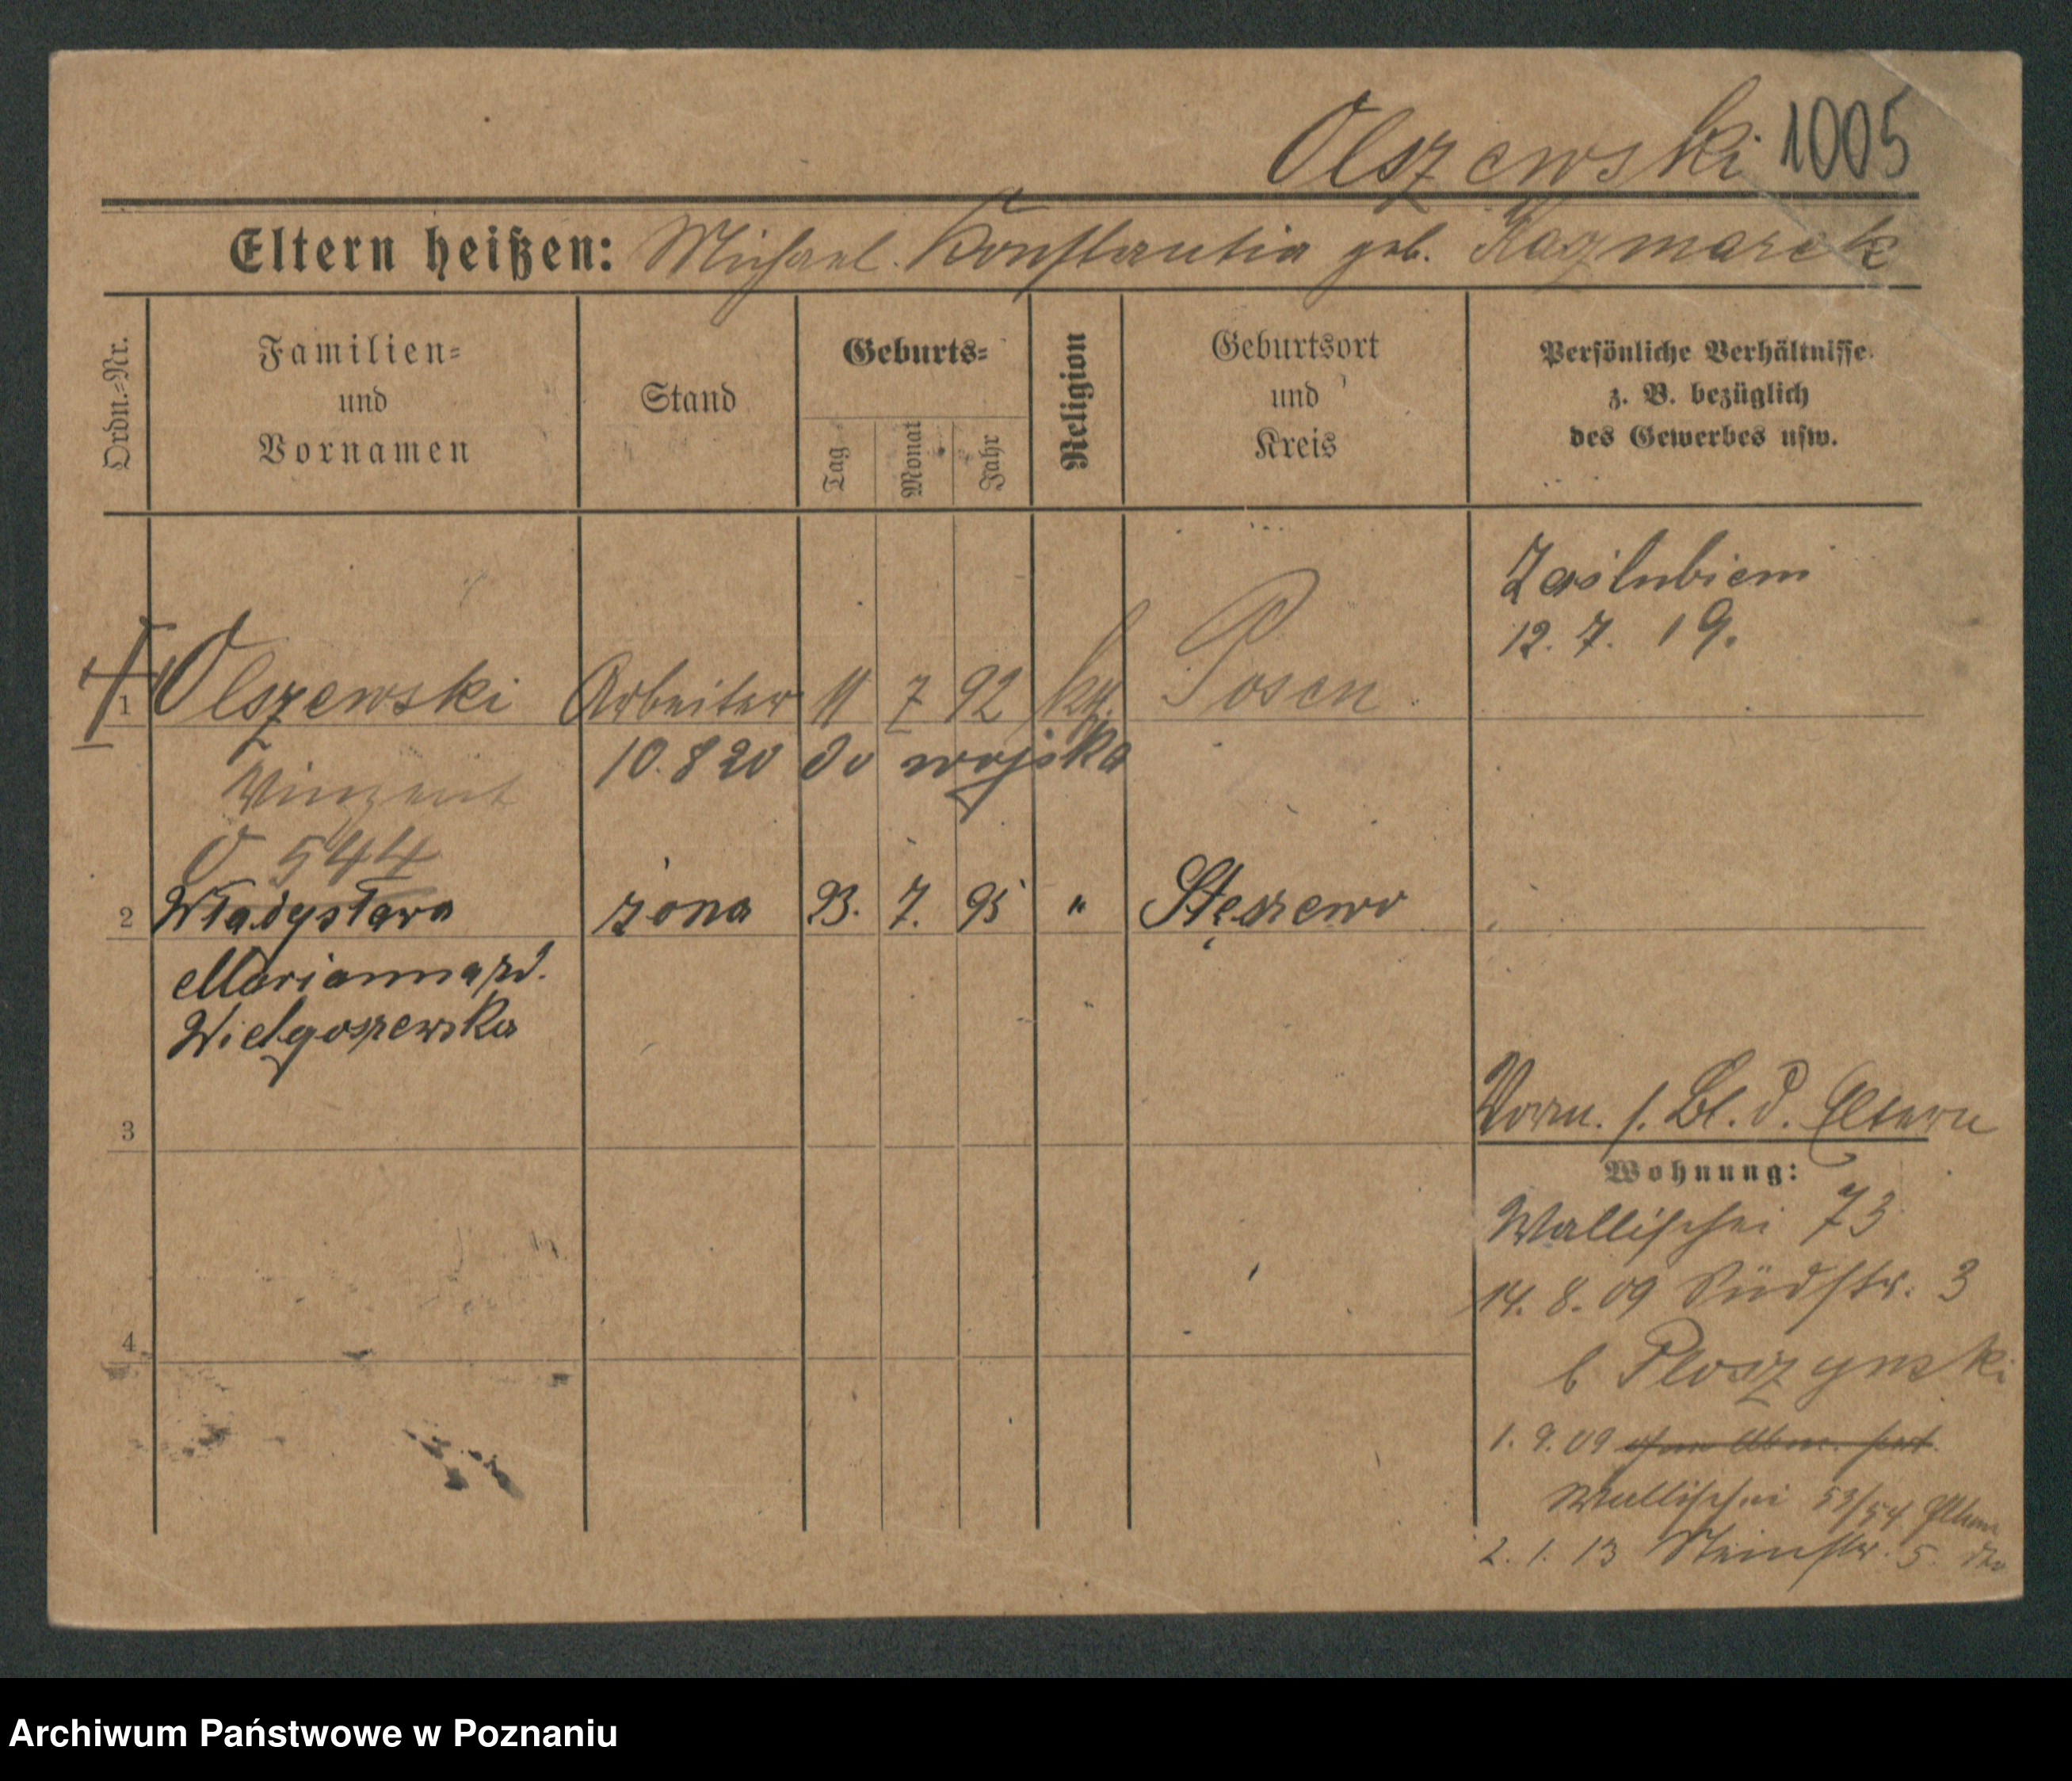 Olszewski 1005
Eltern heißen: Michael. Konstantia geb. Kaczmarek
Ordn.-Nr.
Familien-
und
Vornamen
Stand
Geburts-
Tag
Monat
Jahr
Religion
Geburtsort
und
Kreis
Persönliche Verhältnisse
z. B. bezüglich
des Gewerbes usw.
Zaślubieni
12. 7. 19.
1 Olszewski Arbeiter 11 7 92 kat. Posen
10. 8 20 do wojska
Vinzent
O 544
2 Władysława żona 23. 7. 95 " Stęszewo
Marianna zd.
Wielgoszewska
3
Vorm. s. Bl. d. Eltern
Wohnung:
Wallischei 73
14. 8. 09 Südstr. 3
4
b Ploszynski
1. 9. 09 ohne Abm. fort
Wallischei 53/54 Eltern
2. 1. 13 Steinstr. 5.
Archiwum Państwowe w Poznaniu